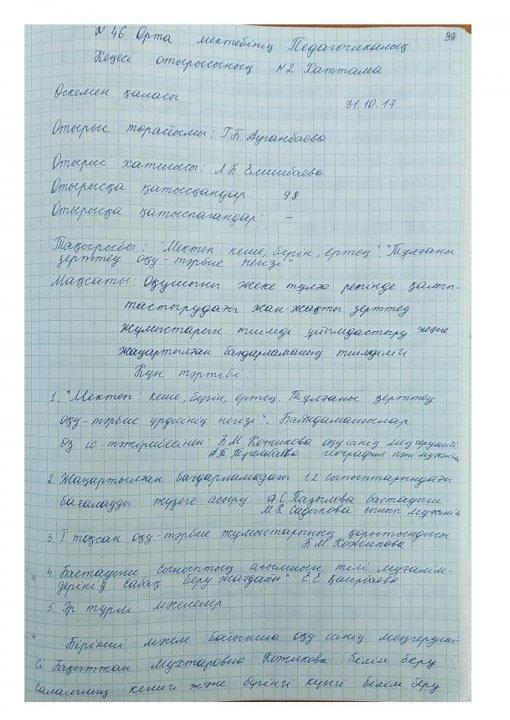 99
№ 46 Орта мектебінің Педагогикалық
Кеңесі отырысының №2 Хаттама
Өскемен қаласы 31.10.17
Отырыс төрайымы: Г.Б Ауганбаева
Отырыс хатшысы: Л.Б
Отырысқа қатысқандар: 98
Отырысқа қатыспағандар: –
Тақырыбы: "Мектеп: кеше, бүгін, ертең". "Тұлғаны
зерттеу оқу-тәрбие негізі".
Мақсаты: Оқушыны жеке тұлға ретінде қалып-
тастырудағы жан-жақты зерттеу
жұмыстарын тиімді ұйымдастыру және
жаңартылған бағдарламаның тиімділігі
Күн тәртібі:
1. "Мектеп: кеше, бүгін, ертең. Тұлғаны зерттеу
оқу-тәрбие үрдісінің негізі". Баяндамашылар
өз іс-тәжірибесінен: Б.М. Кожикова оқу ісінің меңгерушісі
география пәні мұғалімі
2. Жаңартылған бағдарламадағы 1,2 сыныптарындағы
бағалауды жүзеге асыру бастауыш
М.Е. Садыкова сынып мұғалімі
3. I тоқсан оқу-тәрбие жұмыстарының қорытындысы
Б.М Кожикова
4. Бастауыш сыныптың ағылшын тілі мұғалім-
дерінің сабақ беру жағдайы" С.С
5. Әр түрлі мәселелер.
Бірінші мәселе бойынша оқу ісінің меңгеруші
сі Бақытжан Мухтаровна Кожикова білім беру
саласының кешегі және бүгінгі күнгі білім беру